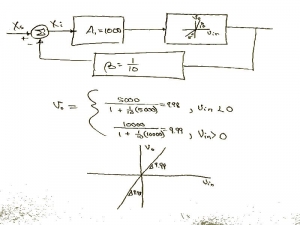 Xs
Xi
Σ
A₁=1000
Vo
Vin
β = 1/10
Vo = { 5000 / (1 + 1/10 (5000)) = 9.98 , Vin < 0
10000 / (1 + 1/10 (10000)) = 9.99 , Vin > 0
Vo
9.99
Vin